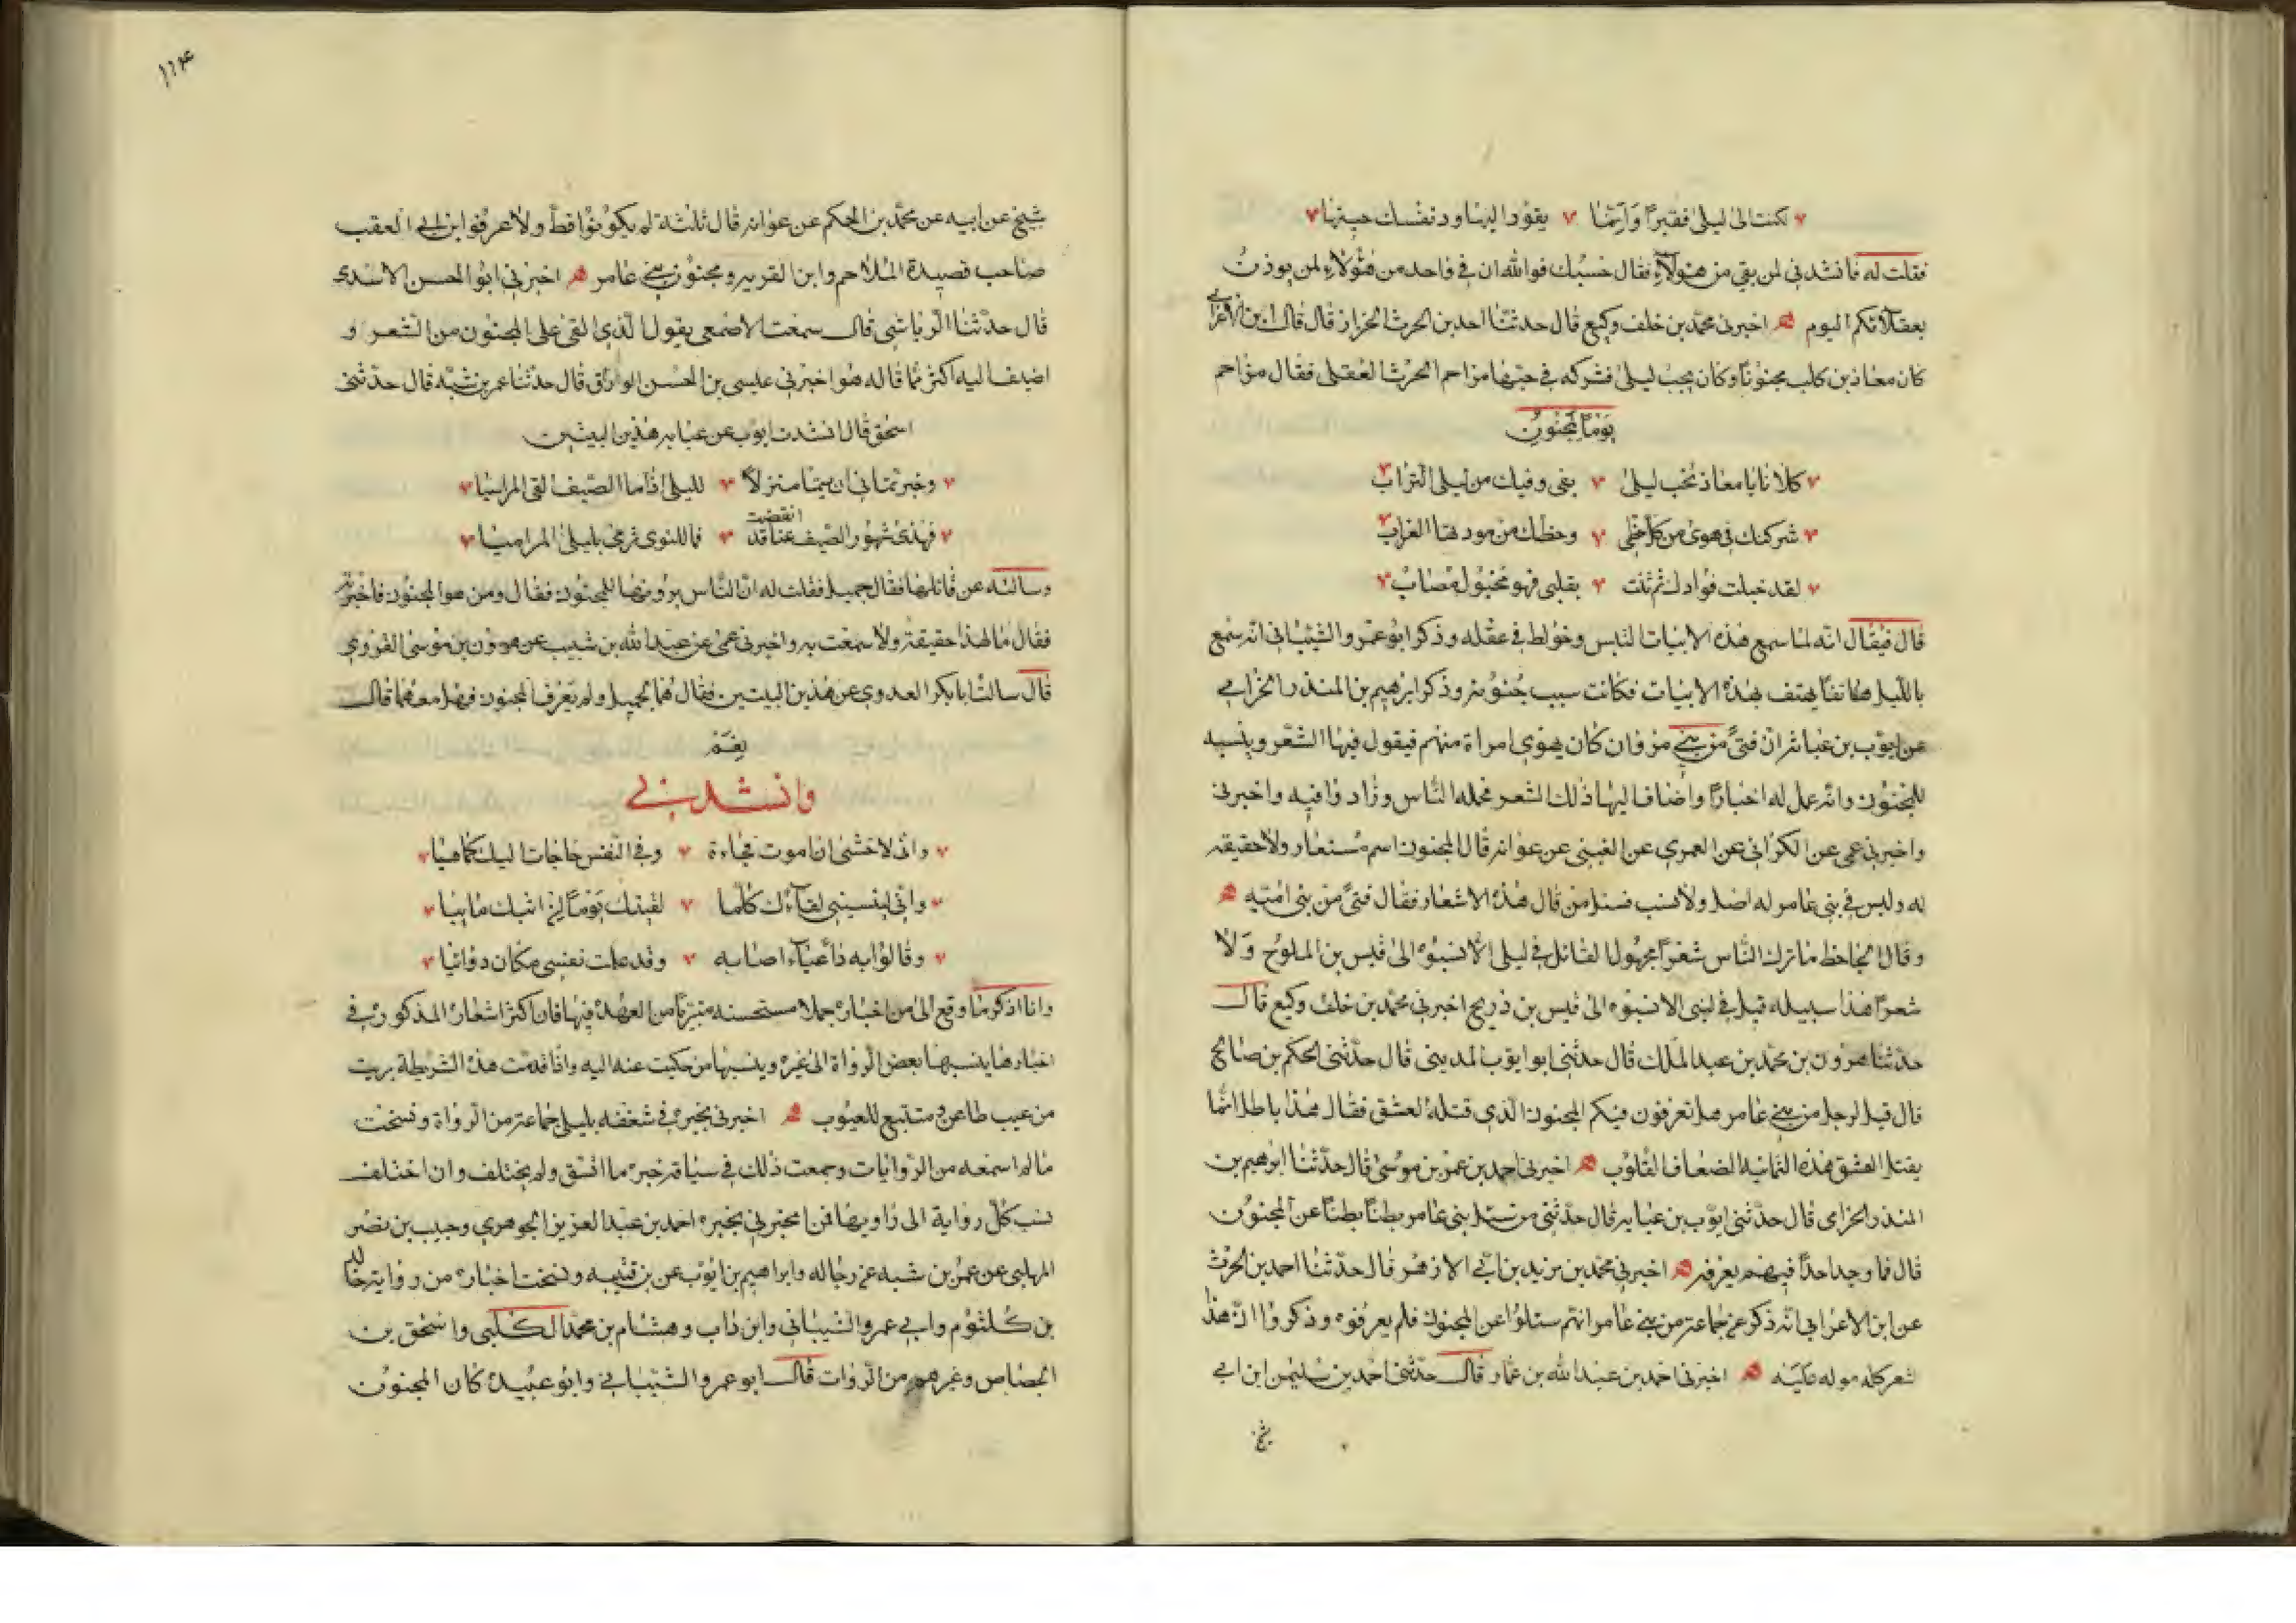 لكنت الى ليلى فقيرا وانما يقود اليها ود نفسك حينها
فقلت له فانشدنى لمن بقي من هؤلاء فقال حسبك فوالله ان في واحد من هؤلاء لمن يوزن
بعقلائكم اليوم اخبرنى محمد بن خلف وكيع قال حدثنا احمد بن الحرث الخزاز قال قال ابن الاعرابي
كان معاذ بن كليب مجنونا وكان يحب ليلى فشركه في حبها مزاحم الحرث العقيلى فقال مزاحم
يوما للمجنون
كلانا يا معاذ نحب ليلى بفى وفيك من ليلى التراب
شركتك في هوى من كل حظى وحظك من مودتها العذاب
لقد خبلت فؤادك ثم ثنت بقلبى فهو مخبول مصاب
قال فيقال انه لما سمع هذه الابيات التبس وخولط في عقله وذكر ابو عمرو الشيبانى انه سمع
بالليل هاتفا يهتف بهذه الابيات فكانت سبب جنونه وذكر ابرهيم بن المنذر الحزامي
عن ايوب بن عباية ان فتى من بني مروان كان يهوى امراة منهم فيقول فيها الشعر وينسبه
للمجنون وانه عمل له اخبارا واضاف اليها ذلك الشعر فحمله الناس وزادوا فيه واخبرنى
واخبرنى عمى عن الكرانى عن العمرى عن العتبى عن عوانه قال المجنون اسم مستعار ولا حقيقه
له وليس في بنى عامر له اصل ولا نسب فسئل من قال هذه الاشعار فقال فتى من بنى اميه
وقال الجاحظ ما ترك الناس شعرا مجهولا لقائل في ليلى الا نسبوه الى قيس بن الملوح ولا
شعرا هذا سبيله قيل في لبنى الا نسبوه الى قيس بن ذريح اخبرنى محمد بن خلف وكيع قال
حدثنا هرون بن محمد بن عبد الملك قال حدثنى ابو ايوب المدينى قال حدثنى الحكم بن صالح
قال قيل لرجل من بني عامر هل تعرفون فيكم المجنون الذى قتله العشق فقال هذا باطل انما
يقتل العشق هذه اليمانيه الضعاف القلوب اخبرنى احمد بن عمر بن موسى قال حدثنا ابرهيم بن
المنذر الحزامى قال حدثنى ايوب بن عبايه قال حدثنى من سئل بنى عامر بطنا بطنا عن المجنون
قال فما وجد احدا فيهم يعرفه اخبرنى محمد بن مزيد بن ابي الازهر قال حدثنا احمد بن الحرث
عن ابن الاعرابى انه ذكر عن جماعة من بني عامر انهم سئلوا عن المجنون فلم يعرفوه وذكروا ان هذا
لشعر كله مولد عليه اخبرنى احمد بن عبد الله بن عمار قال حدثنى احمد بن سليمن ابن ابي
شيخ
١١٤
شيخ عن ابيه عن محمد بن الحكم عن عوانه قال ثلثة لم يكونوا قط ولا عرفوا ابن ابي العقب
صاحب قصيدة الملاحم وابن القريه ومجنون بني عامر اخبرني ابو الحسن الاسدى
قال حدثنا الرياشى قال سمعت الاصمعى يقول الذى القى على المجنون من الشعر و
اضيف اليه اكثر مما قاله هو اخبرنى عيسى بن الحسن الوراق قال حدثنا عمر بن شبه قال حدثنى
اسحق قال انشدت ايوب عن عبايه هذين البيتين
وخبرتمانى ان تيما منزلا لليلى اذا ما الصيف القى المراسيا
فهذى شهور الصيف عنا قد انقضت فما للنوى ترمى بليلى المراميا
وسالته عن قائلها فقال جميل فقلت له ان الناس يروونها للمجنون فقال ومن هو المجنون فاخبرته
فقال ما لهذا حقيقة ولا سمعت به واخبرنى عمى عن عبد الله بن شبيب عن هرون بن موسى الفروى
قال سالت ابا بكر العدوى عن هذين البيتين فقال هما لجميل ولم يعرف المجنون فهل معهما قال
نعم
وانشدني
وانى لاخشى ان اموت فجاءة وفي النفس حاجات اليك كما هيا
وانى لينسينى لقاءك كلما لقيتك يوما ان ابثك ما بيا
وقالوا به داء عياء اصابه وقد علمت نفسى مكان دوائيا
وانا اذكر ما وقع الى من اخباره جملا مستحسنه متبريا من العهدة فيها فان اكثر اشعاره المذكوره في
اخباره ما ينسبها بعض الرواة الى غيره وينسبها من حكيت عنه اليه واذا قدمت هذه الشريطة بريت
من عيب طاعن ومتتبع للعيوب اخبرنى بخبره في شغفه بليلى جماعة من الرواة ونسخت
ما لم اسمعه من الروايات وجمعت ذلك في سياقة خبره ما اتسق ولم يختلف وان اختلف
نسب كل رواية الى راويها فمن اخبرنى بخبره احمد بن عبد العزيز الجوهرى وحبيب بن نصر
المهلبى عن عمر بن شبه عن رجاله وابراهيم بن ايوب عن بن قتيبه ونسخت اخباره من رواية خالد
بن كلثوم وابي عمرو الشيبانى وابن داب وهشام بن محمد الكلبى واسحق بن
الجصاص وغيرهم من الروات قال ابو عمرو الشيبانى وابو عبيدة كان المجنون